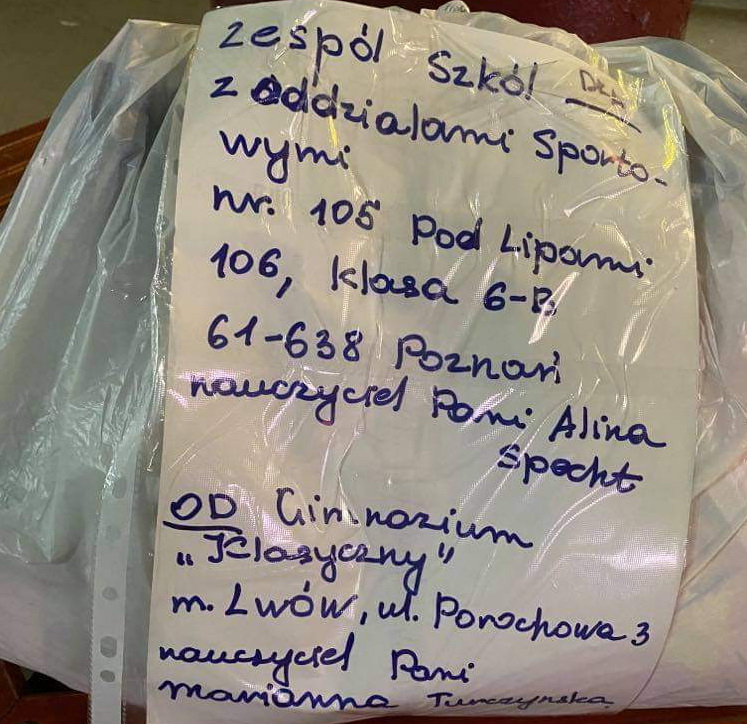 zespól Szkól
z oddzialami Sporto-
wymi
nr. 105 Pod Lipami
106, klasa 6-B,
61-638 Poznań
nauczyciel Pani Alina
Specht
OD Gimnazium
„Klasyczny"
m. Lwów, ul. Porochowa 3
nauczyciel Pani
Marianna Turczynska